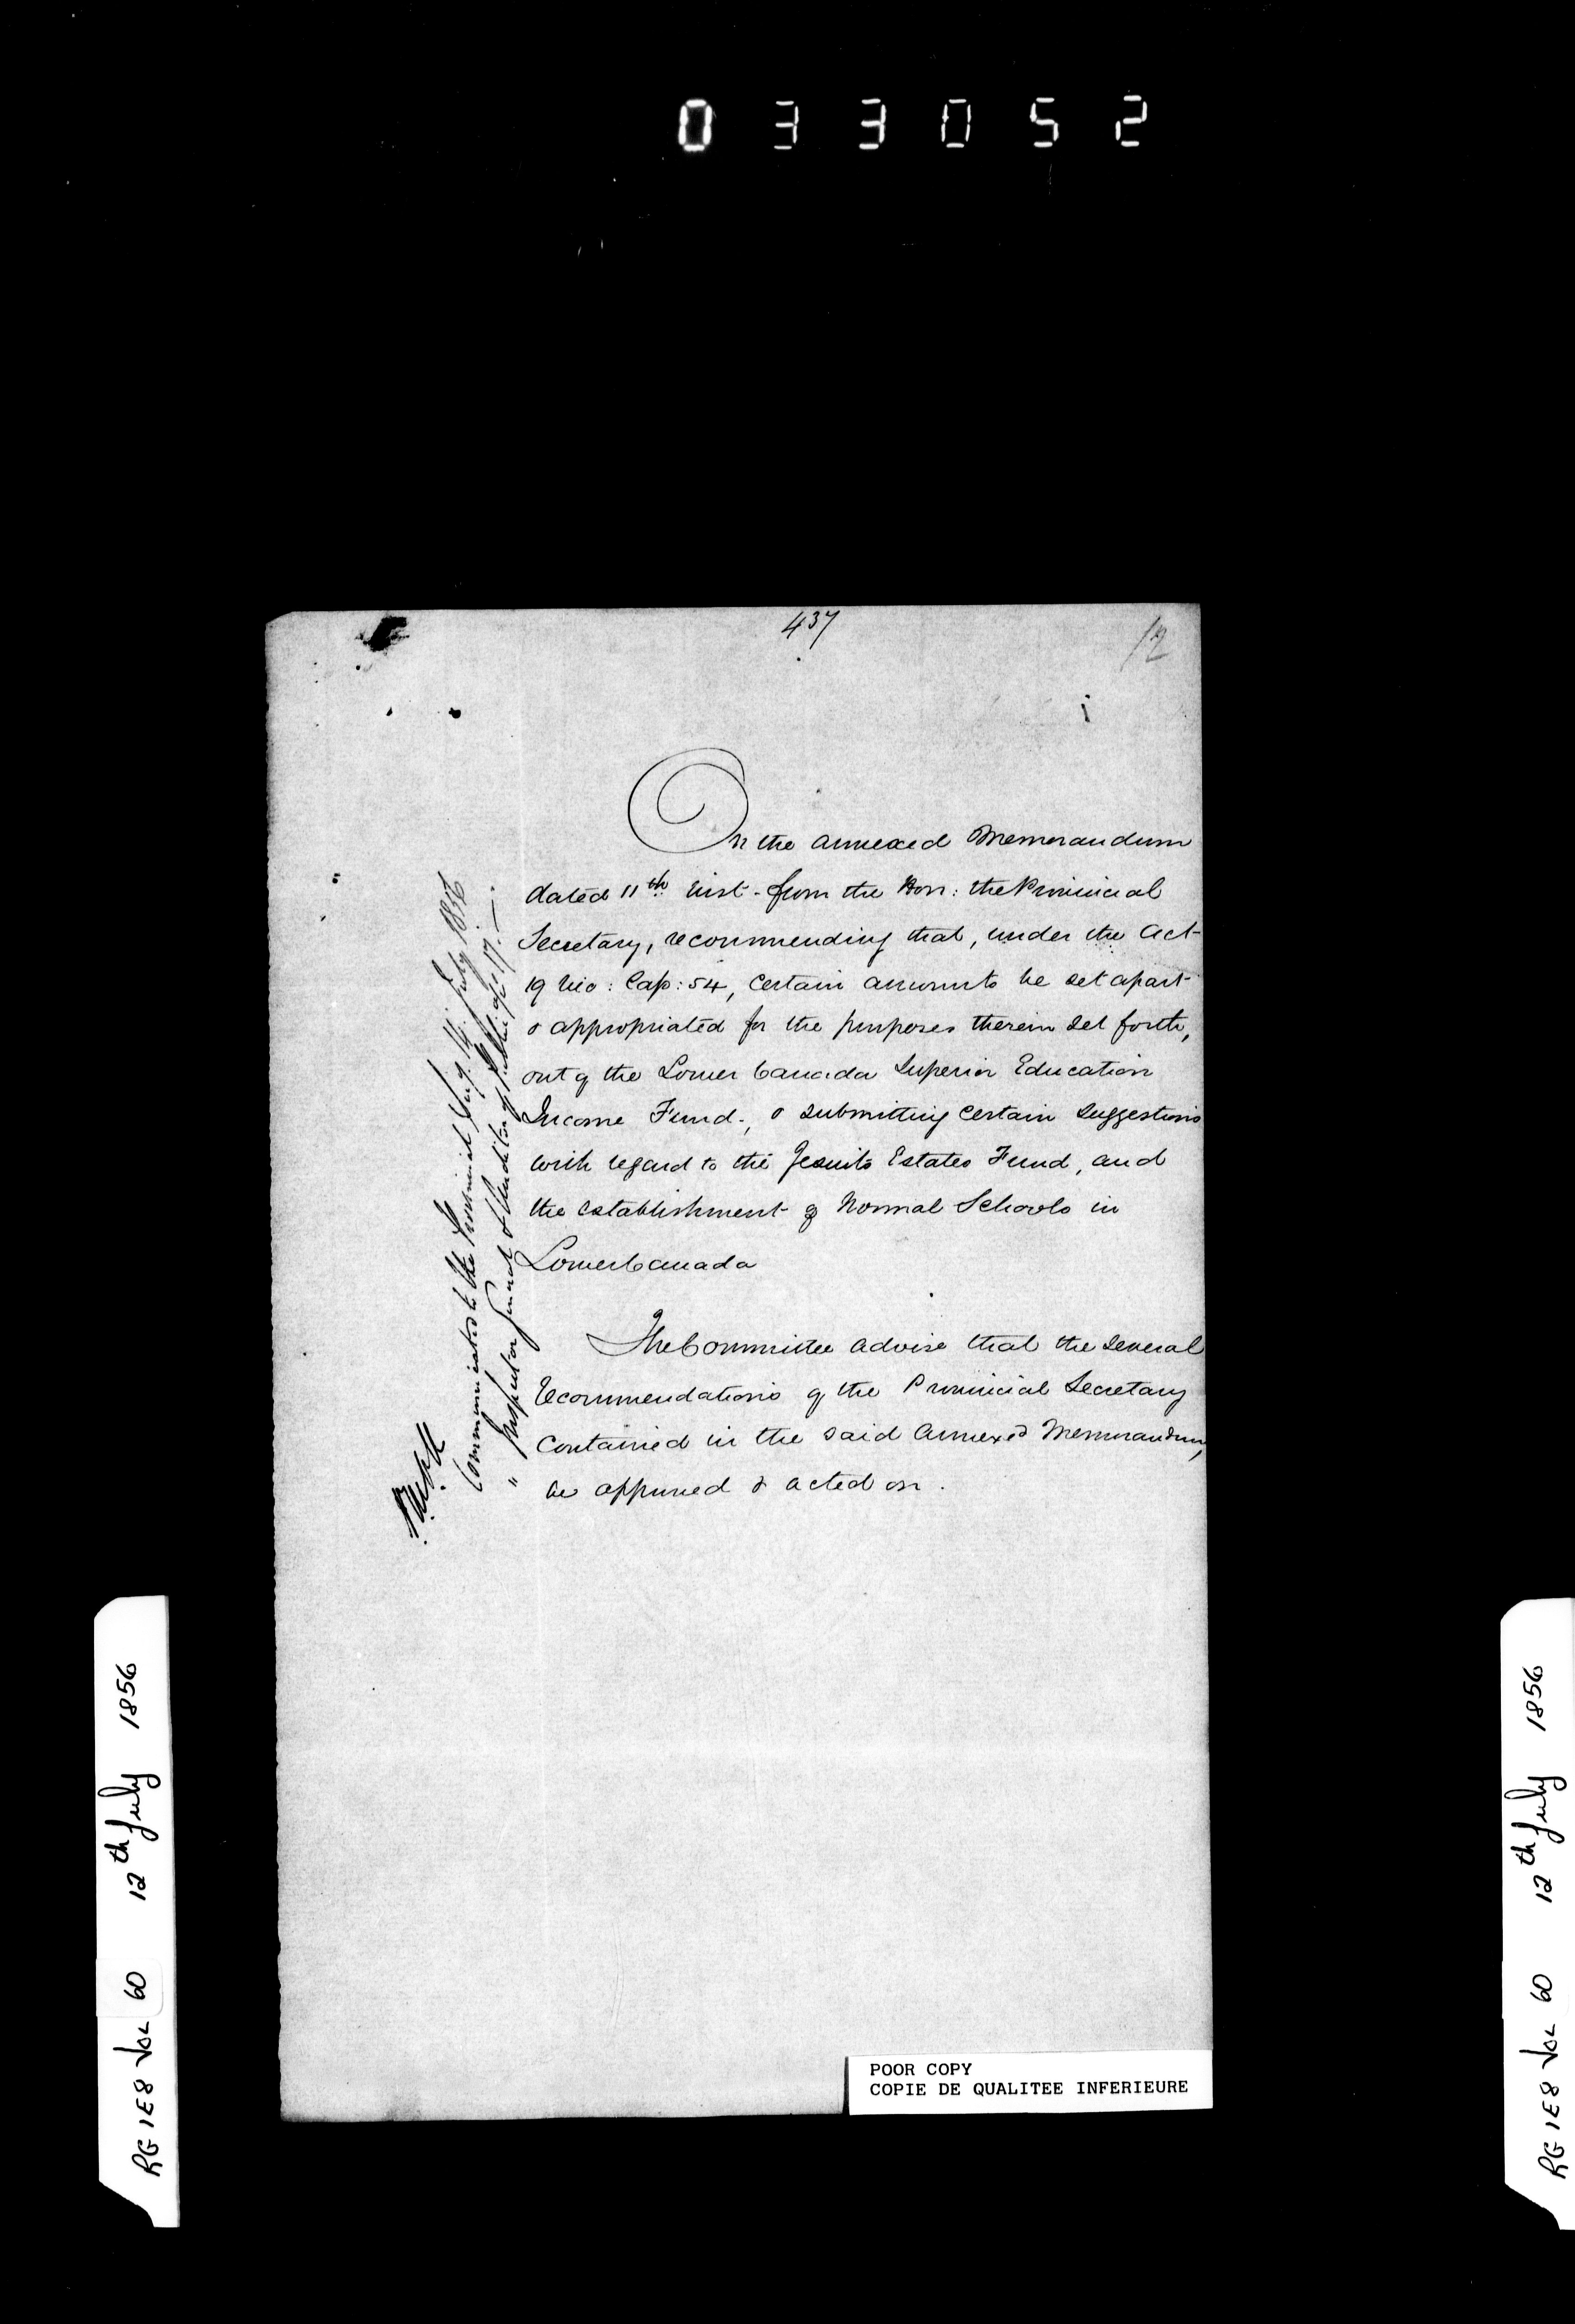 033052
437
12
On the annexed Memorandum
dated 11th inst. from the Hon: the Provincial
Secretary, recommending that, under the Act
19 Vic: Cap: 54, certain amounts be set apart
& appropriated for the purposes therein set forth,
out of the Lower Canada Superior Education
Income Fund., & submitting certain suggestions
with regard to the Jesuits Estates Fund, and
the establishment of Normal Schools in
Lower Canada
The Committee advise that the several
recommendations of the Provincial Secretary
contained in the said annexed Memorandum,
be approved & acted on.
Communicated to the Provincial Secy. 14. July 1856
" Inspector General & Auditor of Public
POOR COPY
COPIE DE QUALITEE INFERIEURE
RG 1E8 Vol 60 12th July 1856
RG 1E8 Vol 60 12th July 1856